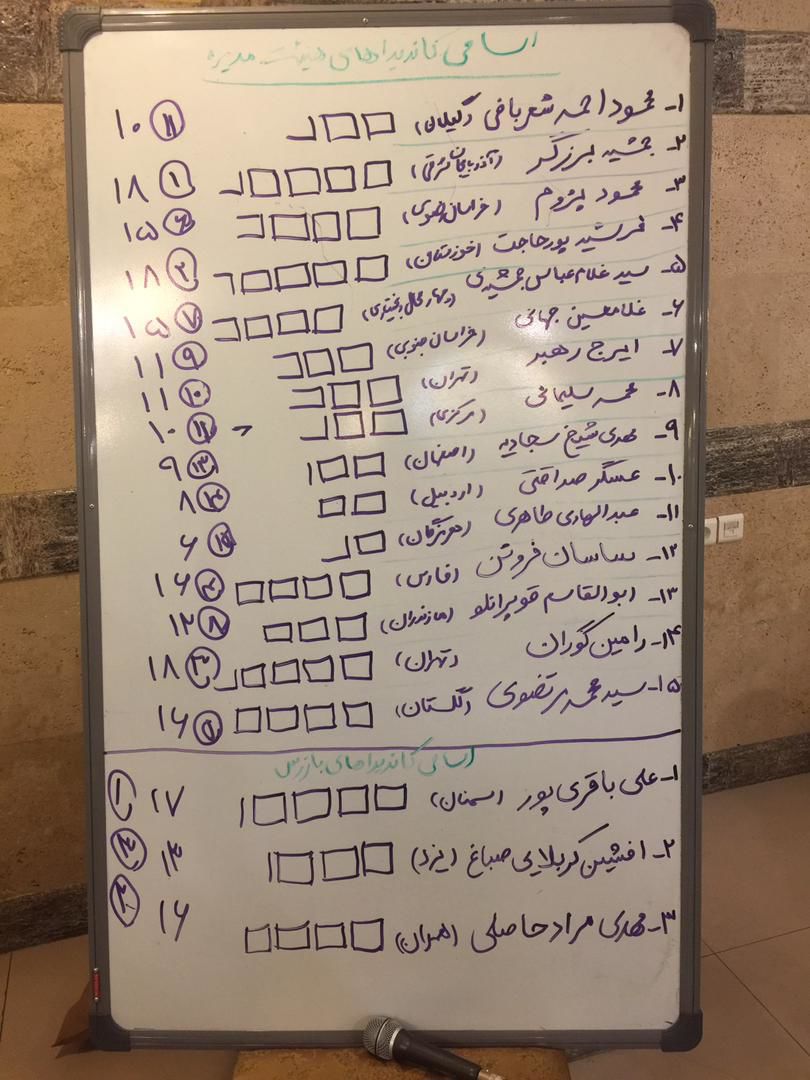 اسامی کاندیداهای هیئت مدیره
۱- محمود احمد شعربافی (گیلان) ۱۰ ۱۱
۲- جمشید برزگر (آذربایجان شرقی) ۱۸ ۱
۳- محمود پژوم (خراسان رضوی) ۱۵ ۶
۴- فرشید پورحاجت (خوزستان) ۱۸ ۲
۵- سید غلام عباس جمشیدی (چهارمحال بختیاری) ۱۵ ۷
۶- غلامحسین جهانی (خراسان جنوبی) ۱۱ ۹
۷- ایرج رهبر (تهران) ۱۱ ۱۰
۸- محمد سلیمانی (مرکزی) ۱۰ ۱۲
۹- مهدی شیخ سجادیه (اصفهان) ۹ ۱۳
۱۰- عسگر صداقتی (اردبیل) ۸ ۱۴
۱۱- عبدالهادی طاهری (هرمزگان) ۶
۱۲- ساسان فروتن (فارس) ۱۶ ۴
۱۳- ابوالقاسم قوپرانلو (مازندران) ۱۲ ۸
۱۴- رامین گوران (تهران) ۱۸ ۳
۱۵- سید محمد مرتضوی (گلستان) ۱۶
اسامی کاندیداهای بازرس
۱- علی باقری پور (سمنان) ۱۷ ۱
۲- افشین کربلایی صباغ (یزد) ۱۴ ۳
۳- مهدی مراد حاصلی (همدان) ۱۶ ۲